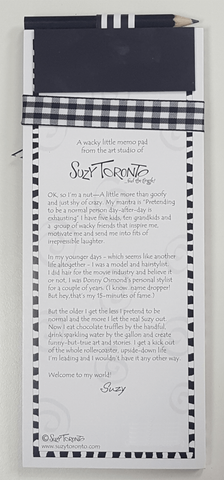 A wacky little memo pad
from the art studio of
SUZY TORONTO
OK, so I'm a nut—A little more than goofy
and just shy of crazy. My mantra is "Pretending
to be a normal person day-after-day is
exhausting" I have five kids, ten grandkids and
a group of wacky friends that inspire me,
motivate me and send me into fits of
irrepressible laughter.
In my younger days - which seems like another
life altogether - I was a model and hairstylist.
I did hair for the movie industry and believe it
or not, I was Donny Osmond's personal stylist
for a couple of years. (I know :name dropper!
But hey,that's my 15-minutes of fame.)
But the older I get the less I pretend to be
normal and the more I let the real Suzy out.
Now I eat chocolate truffles by the handful,
drink sparkling water by the gallon and create
funny-but-true art and stories. I get a kick out
of the whole rollercoaster, upside-down life
I'm leading and I wouldn't have it any other way.
Welcome to my world!
Suzy
© SUZY TORONTO
www.suzytoronto.com